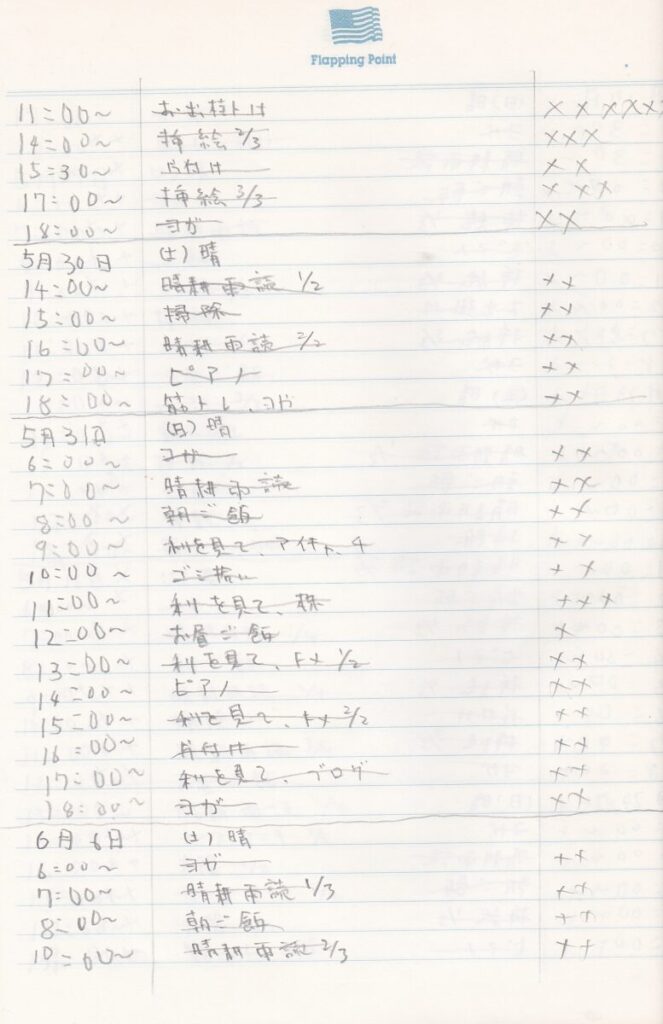 Flapping Point
11:00～ お出掛け ×××××××
14:00～ 挿絵 2/3 ×××
15:30～ 片付け ××
17:00～ 挿絵 3/3 ×××
18:00～ ヨガ ××
5月30日 (土) 晴
14:00～ 晴耕雨読 1/2 ××
15:00～ 掃除 ××
16:00～ 晴耕雨読 2/2 ××
17:00～ ピアノ ××
18:00～ 筋トレ、ヨガ ××
5月31日 (日) 晴
6:00～ ヨガ ××
7:00～ 晴耕雨読 ××
8:00～ 朝ご飯 ××
9:00～ 利を見て、 ××
10:00～ ゴミ拾い ××
11:00～ 利を見て、株 ×××
12:00～ お昼ご飯 ×
13:00～ 利を見て、 1/2 ××
14:00～ ピアノ ××
15:00～ 利を見て、 2/2 ××
16:00～ 片付け ××
17:00～ 利を見て、ブログ ××
18:00～ ヨガ ××
6月6日 (土) 晴
6:00～ ヨガ ××
7:00～ 晴耕雨読 1/3 ××
8:00～ 朝ご飯 ××
10:00～ 晴耕雨読 2/3 ××